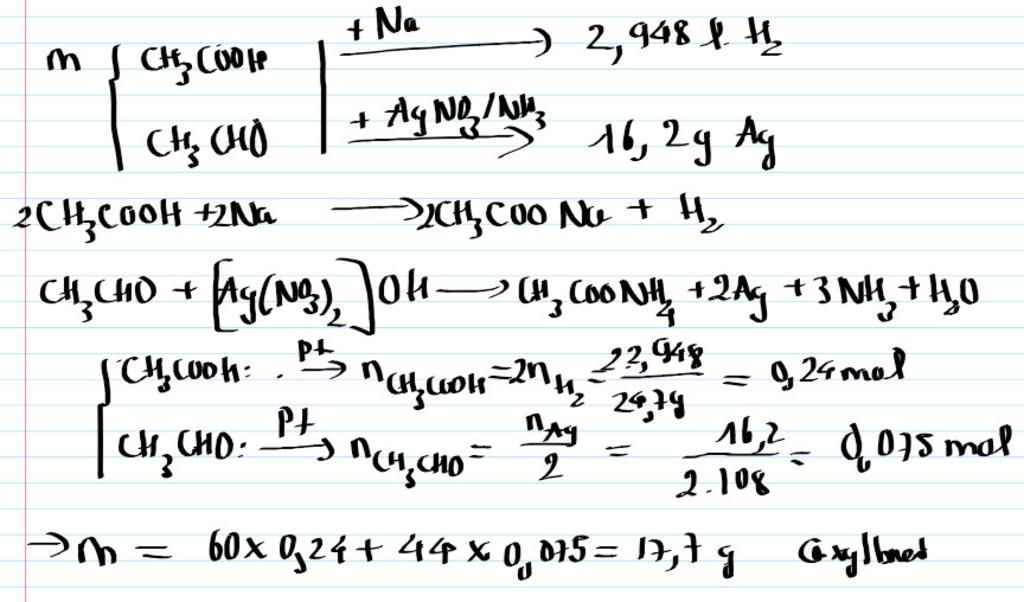 m { CH₃COOH | + Na → 2,948 l H₂
CH₃CHO | + AgNO₃/NH₃ → 16,2g Ag
2CH₃COOH + 2Na → 2CH₃COONa + H₂
CH₃CHO + [Ag(NO₃)₂]OH → CH₃COONH₄ + 2Ag + 3NH₃ + H₂O
{ CH₃COOH: . Pt → n CH₃COOH = 2n H₂ = 22,948 / 24,79 = 0,24 mol
CH₃CHO: Pt → n CH₃CHO = n Ag / 2 = 16,2 / 2.108 = 0,075 mol
→ m = 60 x 0,24 + 44 x 0,075 = 17,7 g